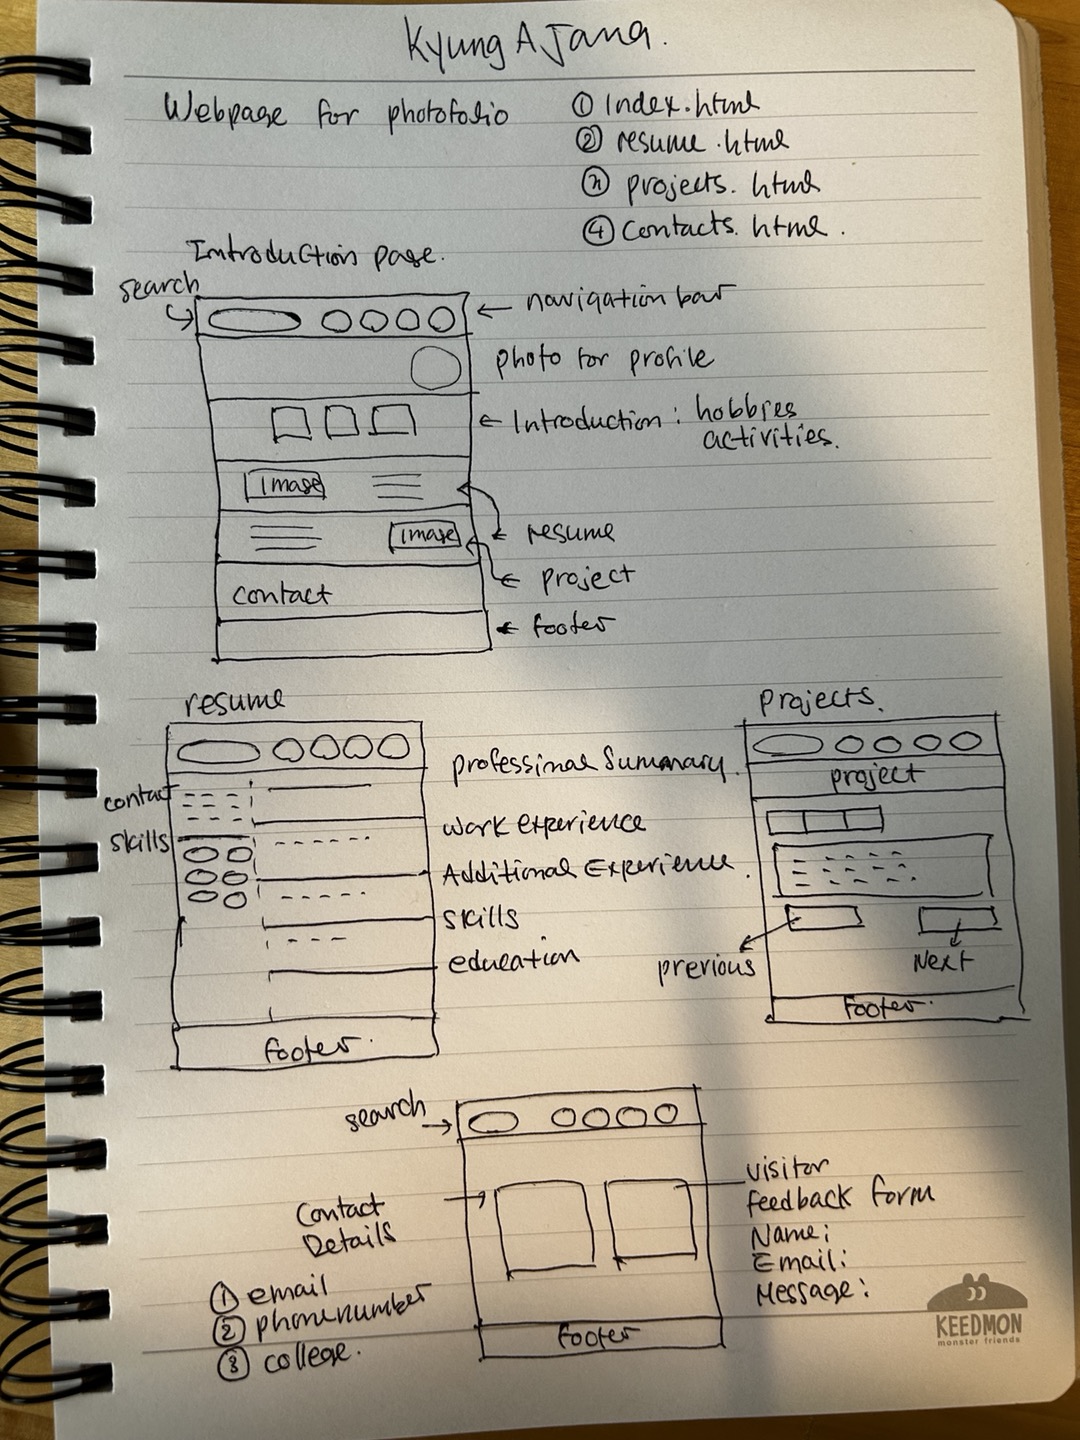 Kyung A Jang.
Webpage for photofolio
① Index.html
② resume.html
③ projects.html
④ contacts.html.
Introduction page.
search
navigation bar
photo for profile
Introduction: hobbies
activities.
image
image
resume
project
contact
footer
resume
contact
skills
professinal Summary.
work experience
Additional Experience.
skills
education
footer.
projects.
project
previous
Next
footer.
search
Contact
Details
① email
② phonenumber
③ college.
visitor
feedback form
Name:
Email:
Message:
footer
KEEDMON
monster friends